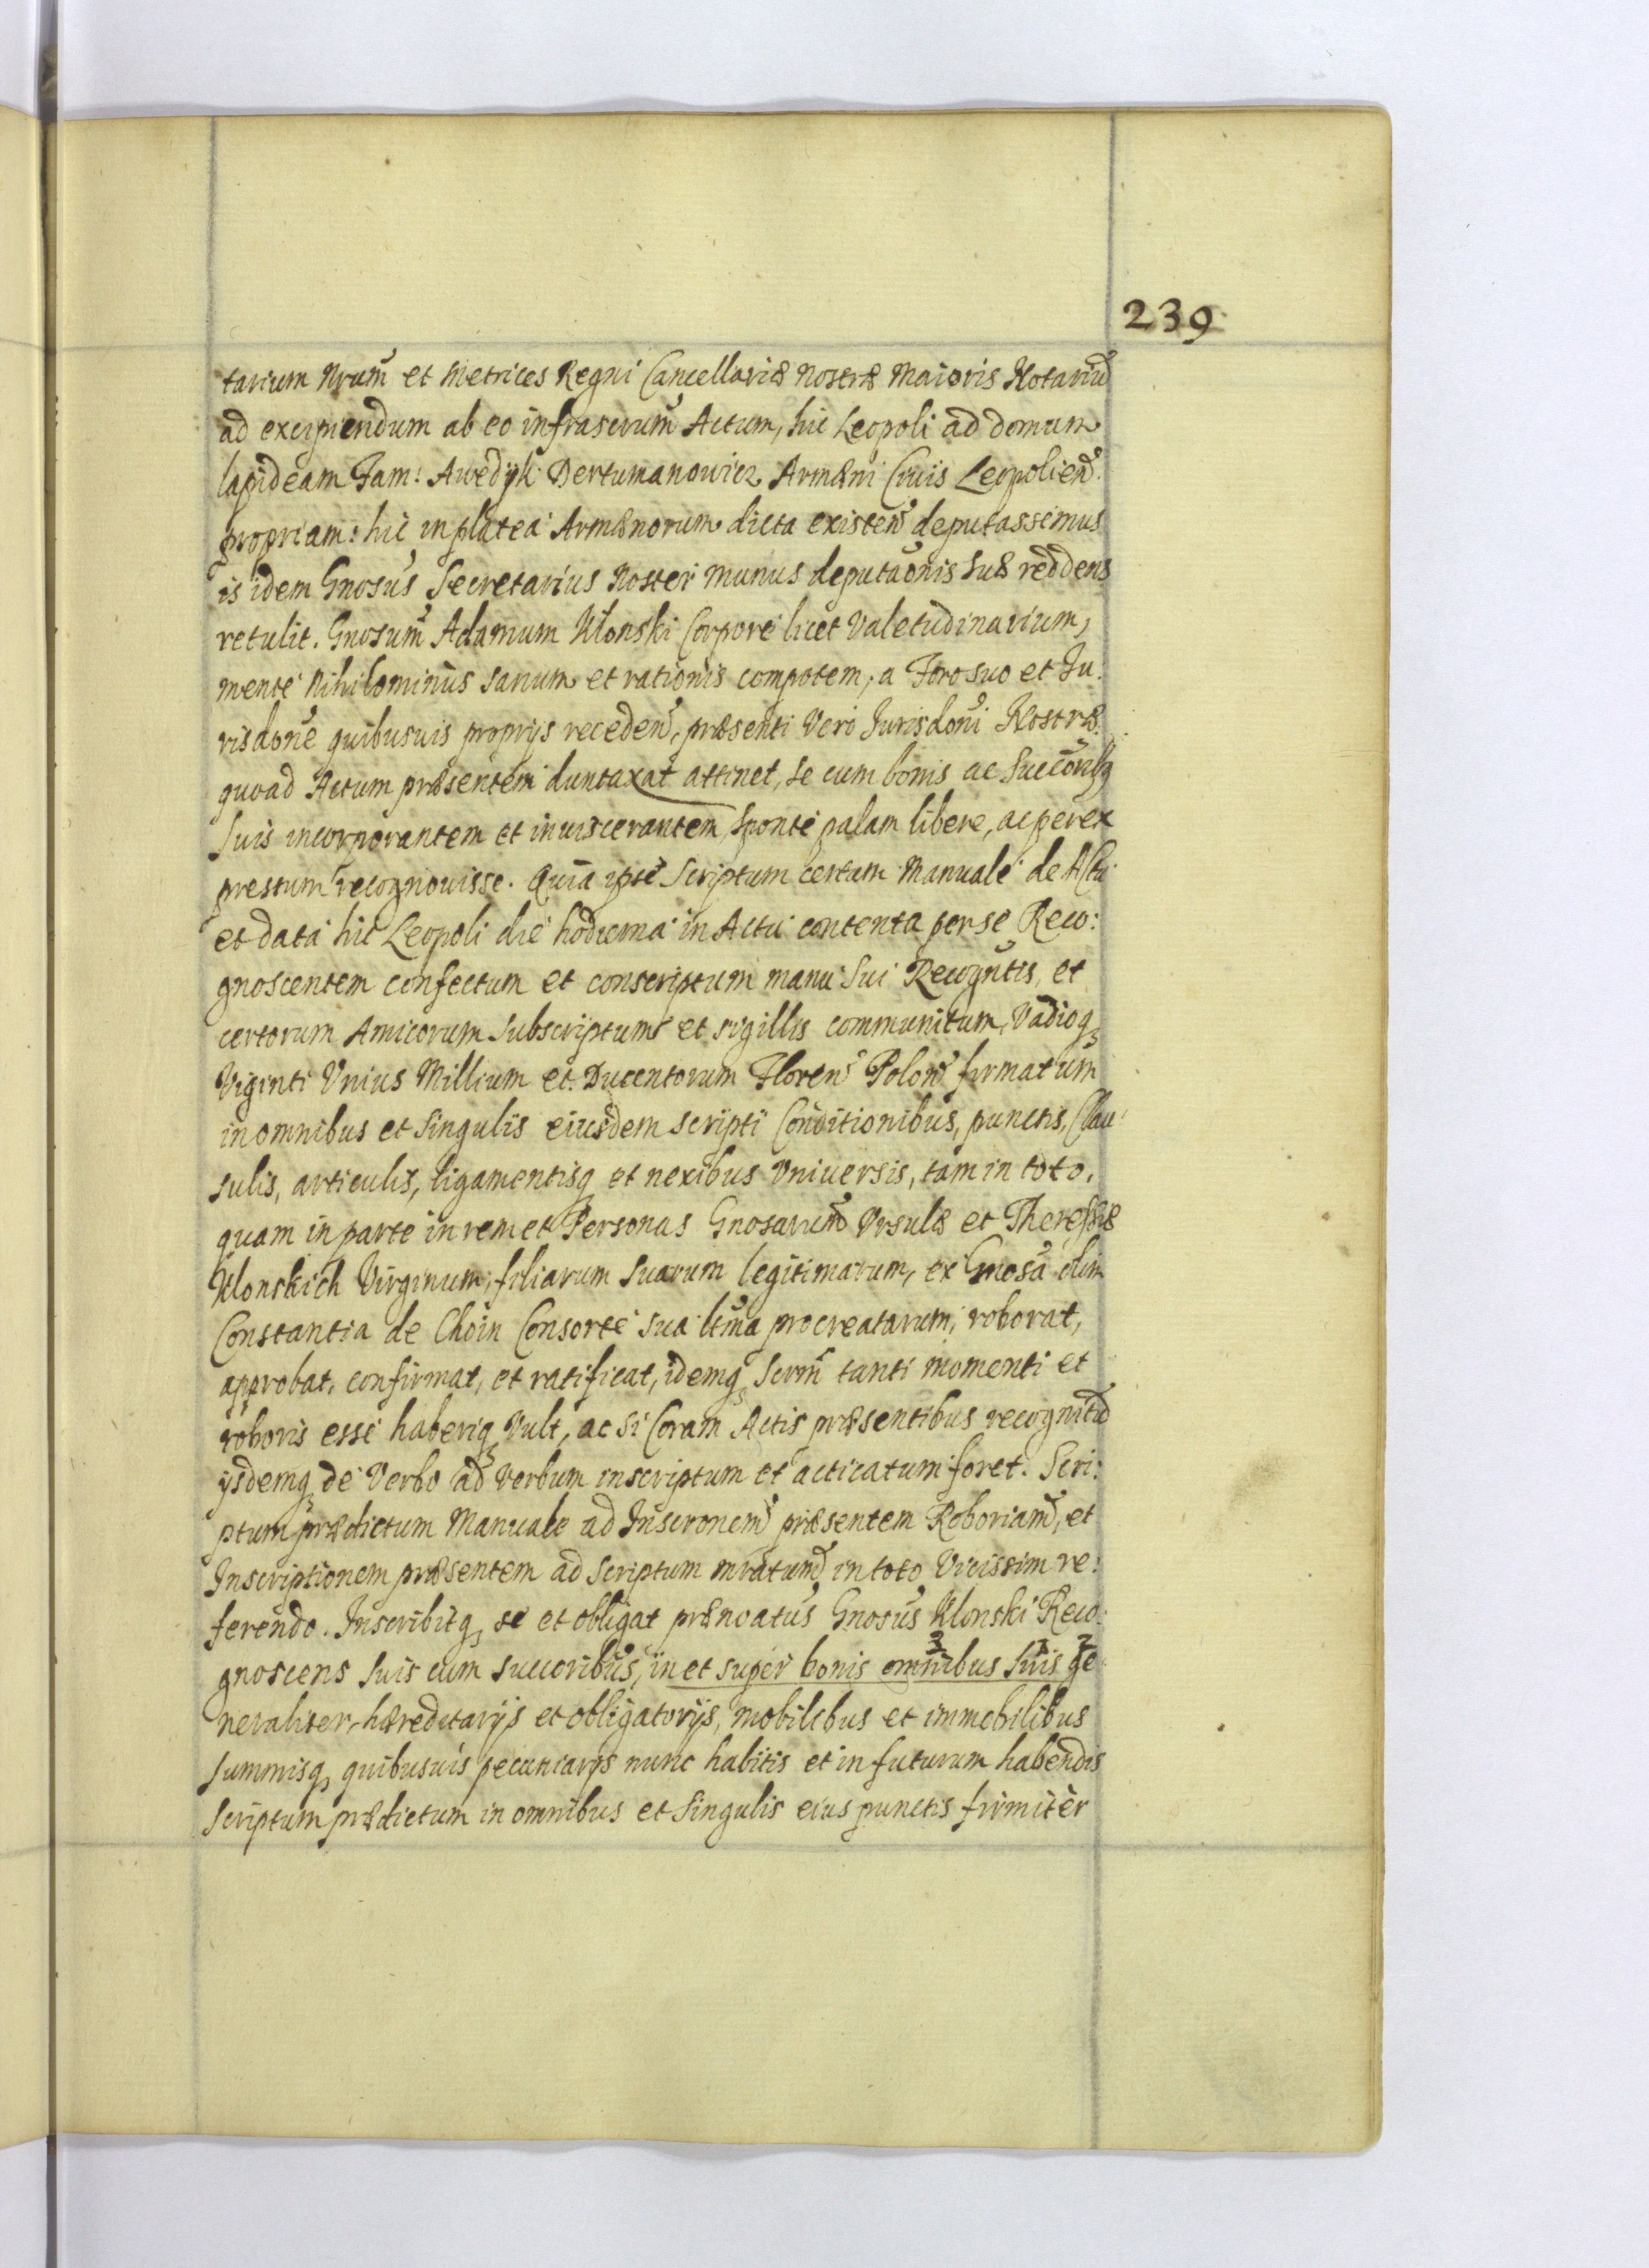 239
tarium Nrum̃ et Metrices Regni Cancellariæ Nostræ Maioris Notariũ
ad excipiendum ab eo infrascrum̃ Actum, hic Leopoli ad domum
lapideam Fam: Awedyk Dertumanowicz Armæni Civis Leopolien̄
propriam: hic in platea Armænorum dicta existen̄ deputassemus
is idem Gnosus̃ Secretarius Noster munus deputaõnis suæ reddens
retulit. Gnosum̃ Adamum Klonski Corpore licet Valetudinarium,
mente Nihilominus sanum et rationis compotem, a Foro suo et Ju:
risdone͂ quibusuis proprijs receden̄, præsenti Vero Jurisdoni͂ Nostræ:
quoad Actum præsentem duntaxat attinet, se cum bonis ac Succõribq
Suis incorporantem et inuiscerantem, sponte palam libere, ac per ex
pressum recognouisse. Quia ipse Scriptum certum Manuale de Actu
et data hic Leopoli die hodierna in Actu contenta per se Reco:
gnoscentem confectum et conscriptum manu Sui Recogñtis, et
certorum Amicorum subscriptum et sigillis communitum, Vadioq
Viginti Vnius Millium et Ducentorum Floren̄ Polon̄ firmatum
in omnibus et Singulis eiusdem scripti Conditionibus, punctis, Clau
sulis, articulis, ligamentisq et nexibus Vniuersis, tam in toto,
quam in parte in rem et Personas Gnosarum̃ Vrsulæ et Theressiæ
Klonskich Virginum, filiarum suarum legitimarum, ex Gnosa͂ olim
Constantia de Choin Consorte sua ltma͂ procreatarum, roborat,
approbat, confirmat, et ratificat, idemq scrm̃ tanti momenti et
roboris esse haberiq Vult, ac si Coram Actis præsentibus recognitũ
ijsdemq de Verbo ad Verbum inscriptum et acticatum foret. Scri:
ptum prædictum Manuale ad Inscronem̃ præsentem Roboriam̃, et
Inscriptionem præsentem ad scriptum mratum̃ in toto Vicissim re:
ferendo. Inscribitq se et obligat prænoatus̃ Gnosus̃ Klonski Reco:
gnoscens suis cum succoribus̃, in et super bonis omnibus 3 suis 1 ge 2
neraliter hæreditarijs et obligatorijs, mobilibus et immobilibus
summisq quibusuis pecuniarijs nunc habitis et in futurum habendis
scriptum prædictum in omnibus et Singulis eius punctis firmiter